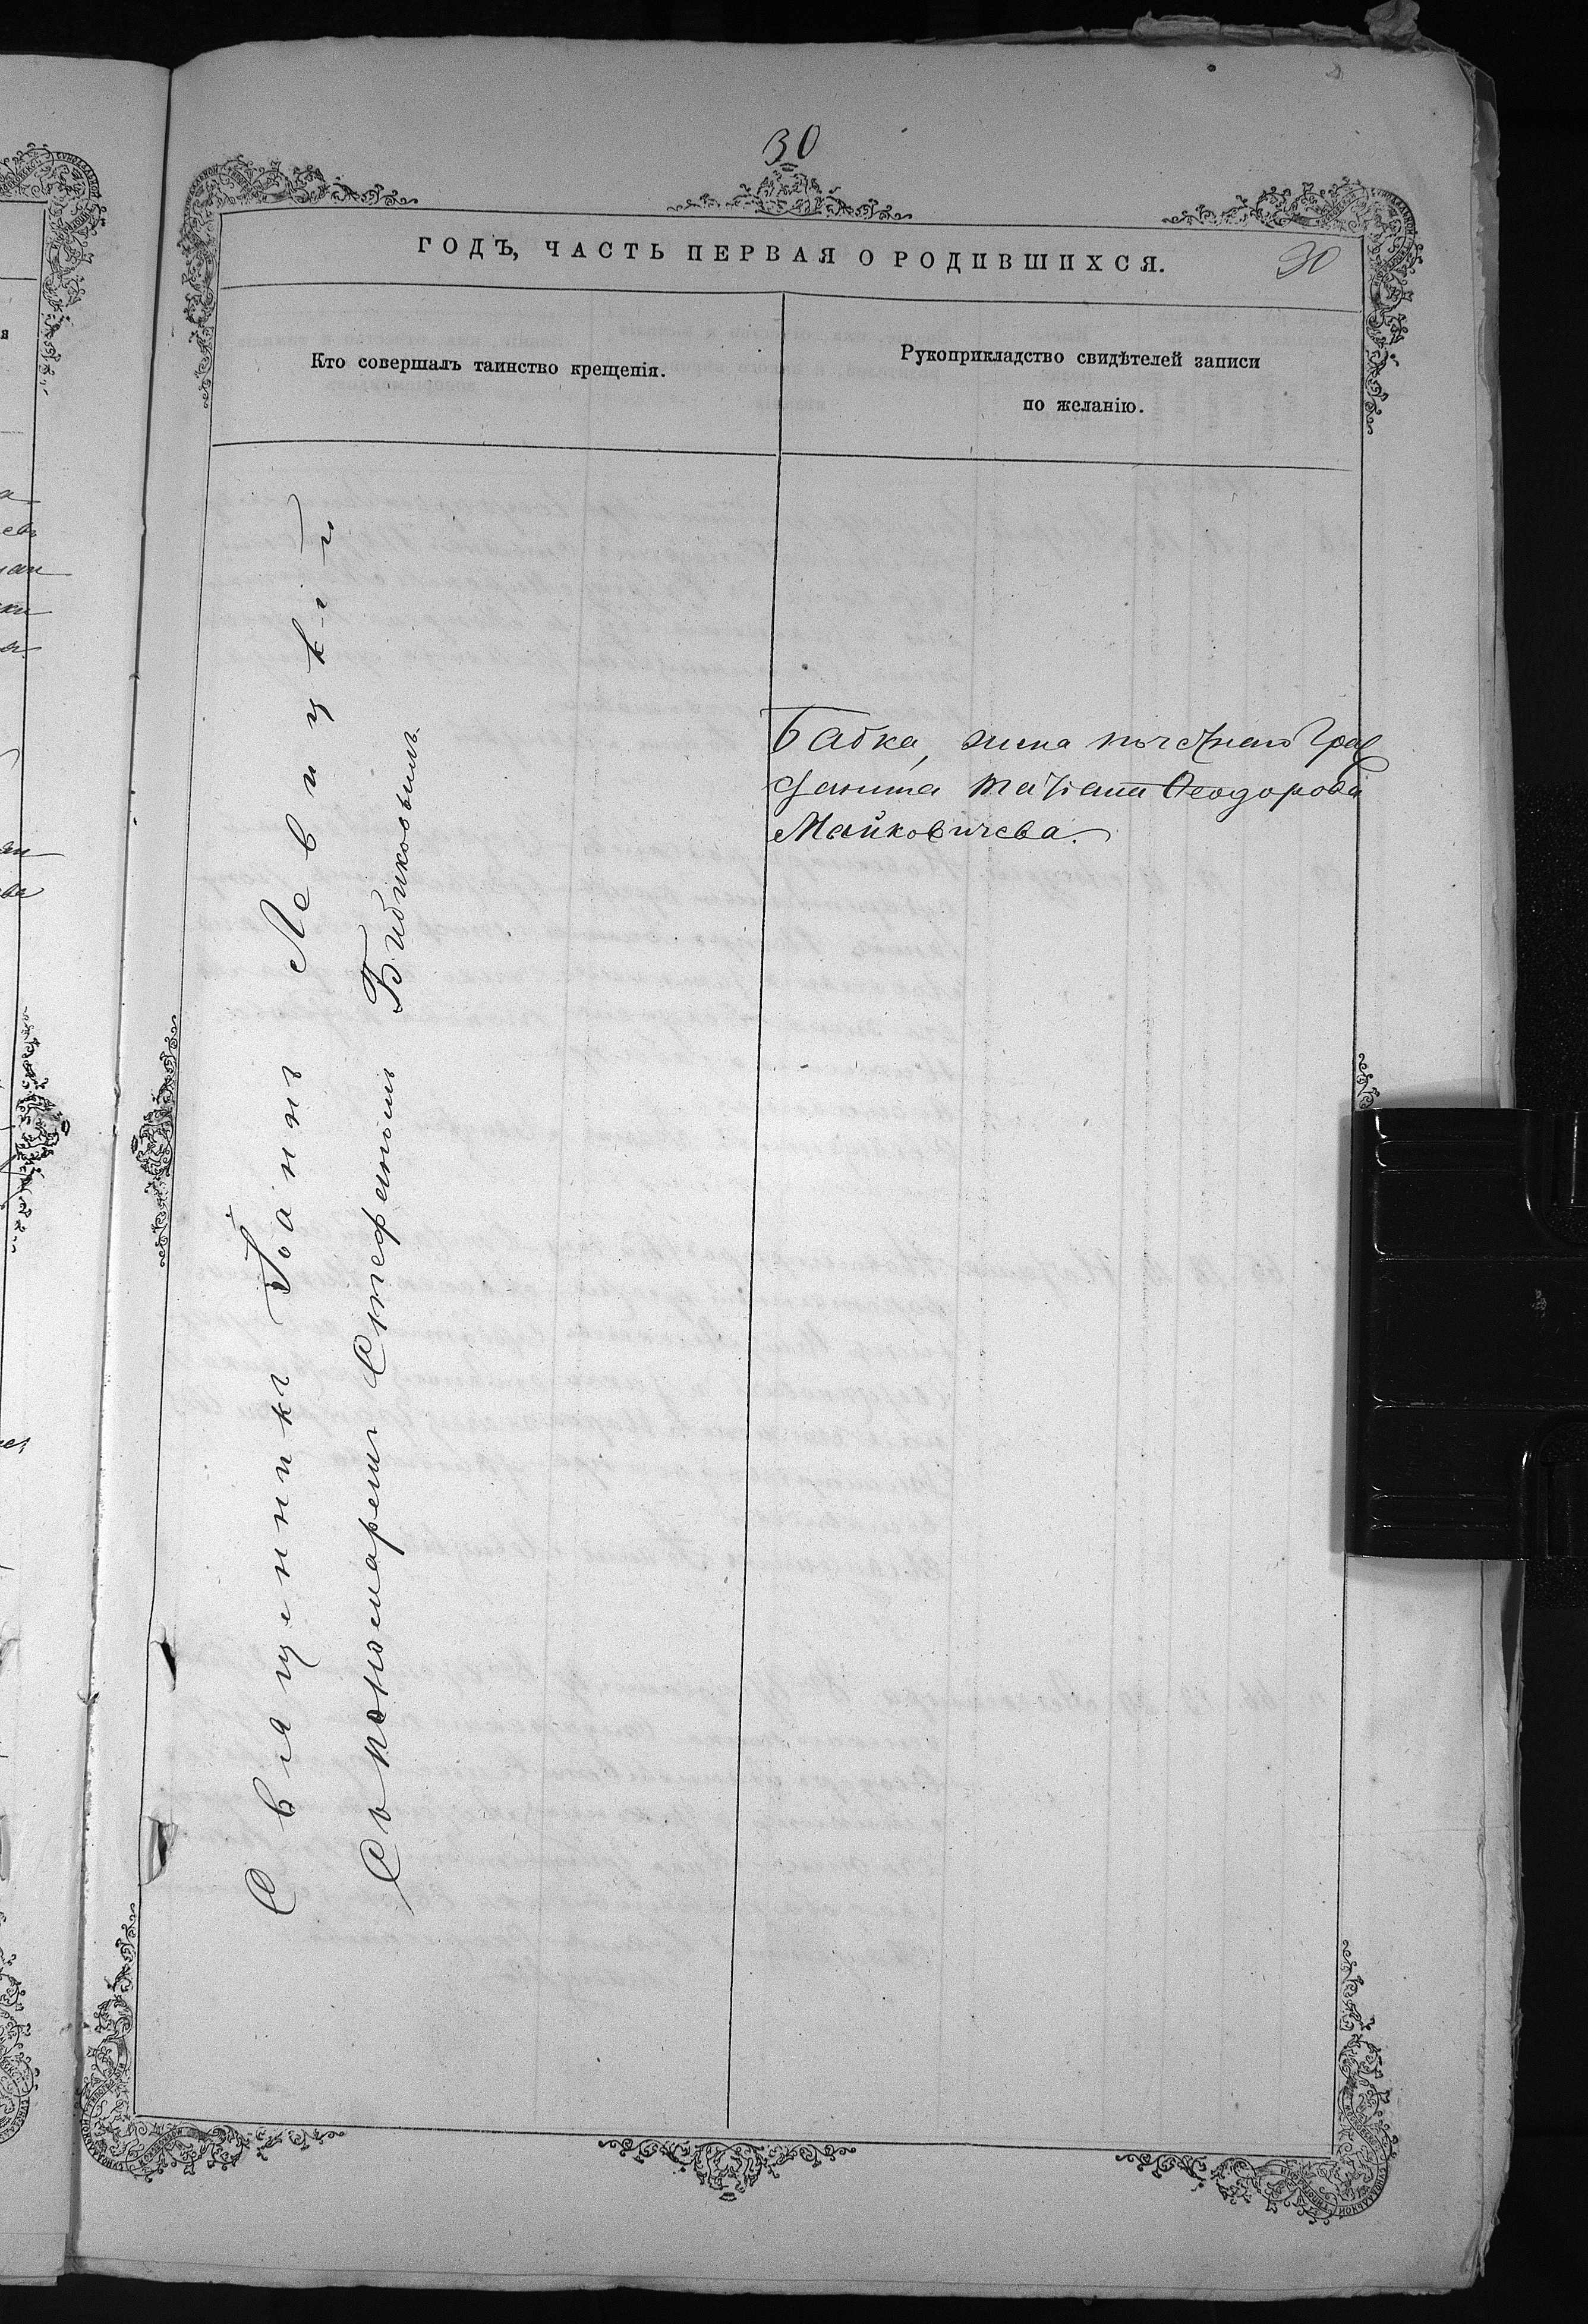 30
ГОДЪ, ЧАСТЬ ПЕРВАЯ О РОДИВШИХСЯ.
30
Кто совершалъ таинство крещенія.
Рукоприкладство свидѣтелей записи
по желанію.
Священникъ Іоаннъ Левицкій
Съ пономаремъ Стефаномъ Бибиковымъ
Бабка, жена почетнаго граж
данина Татіана Феодорова
Майковичева.